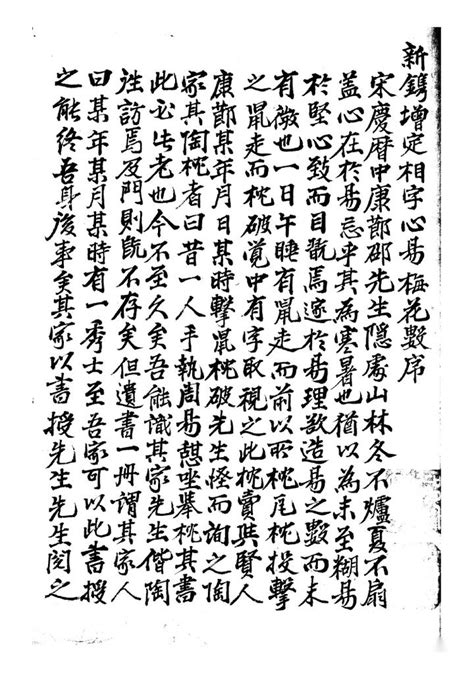 新鐫增定相字心易梅花數序
宋慶曆中康節邵先生隱處山林冬不爐夏不扇
蓋心在於易忘乎其為寒暑也猶以為未至糊易
於堅心致而目翫焉邃於易理欲造易之數而未
有徵也一日午睡有鼠走而前以所枕瓦枕投擊
之鼠走而枕破覺中有字取視之此枕賣與賢人
康節某年月日某時擊鼠枕破先生怪而詢之陶
家其陶枕者曰昔一人手執周易憇坐舉枕其書
此必此老也今不至久矣吾能識其家先生偕陶
徃訪焉及門則旣不存矣但遺書一冊謂其家人
曰某年某月某時有一秀士至吾家可以此書授
之能終吾身後事矣其家以書授先生先生閱之